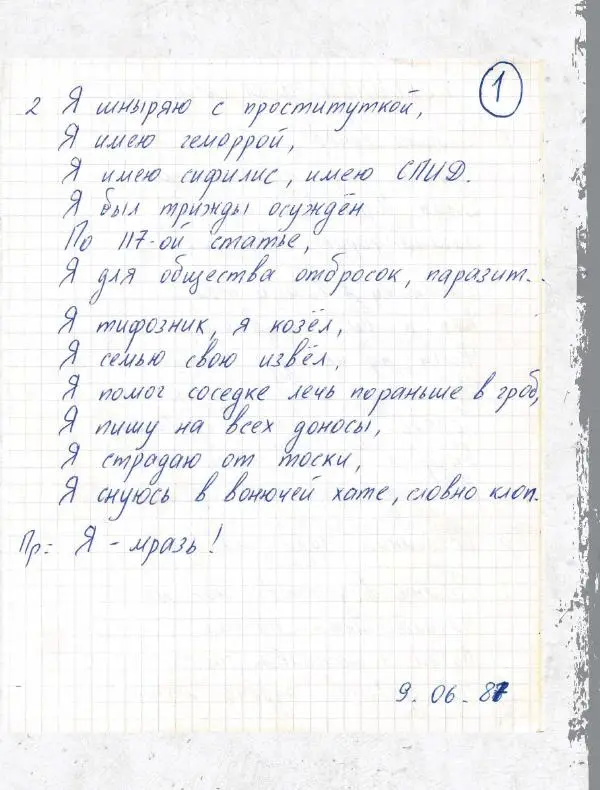 1
2 Я шныряю с проституткой,
Я имею геморрой,
Я имею сифилис, имею СПИД.
Я был трижды осуждён
По 117-ой статье,
Я для общества отбросок, паразит..
Я тифозник, я козёл,
Я семью свою извёл,
Я помог соседке лечь пораньше в гроб,
Я пишу на всех доносы,
Я страдаю от тоски,
Я снуюсь в вонючей хате, словно клоп.
Пр: Я - мразь!
9. 06 - 87